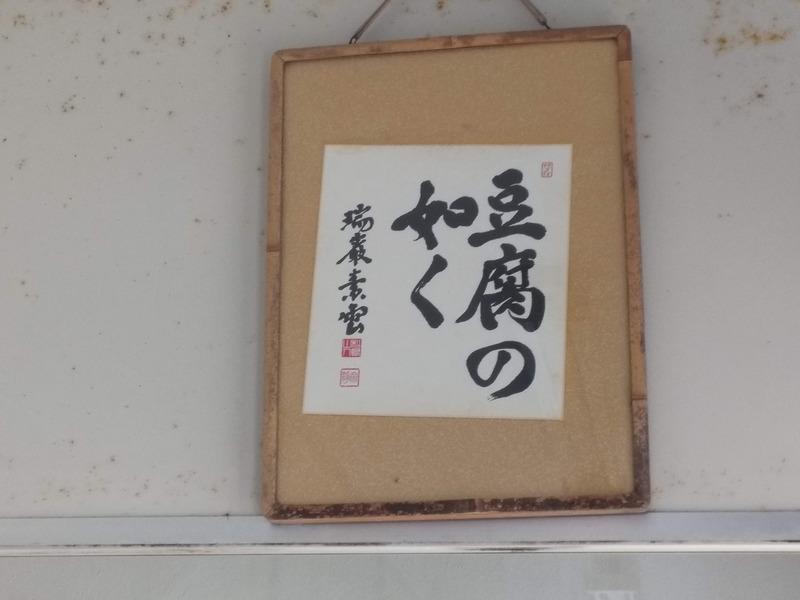 豆腐の
如く
瑞巌素雲